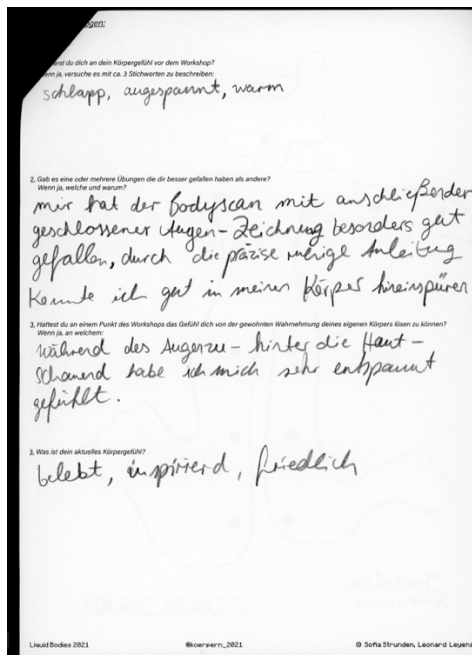 gen:
erst du dich an dein Körpergefühl vor dem Workshop?
enn ja, versuche es mit ca. 3 Stichworten zu beschreiben:
schlapp, angespannt, warm
2, Gab es eine oder mehrere Übungen die dir besser gefallen haben als andere?
Wenn ja, welche und warum?
mir hat der Bodyscan mit anschließender
geschlossener Augen-Zeichnung besonders gut
gefallen, durch die präzise ruhige Anleitung
konnte ich gut in meinen Körper hineinspüren
3, Hattest du an einem Punkt des Workshops das Gefühl dich von der gewohnten Wahrnehmung deines eigenen Körpers lösen zu können?
Wenn ja, an welchem:
während des Augenzu- hinter die Haut-
schauend habe ich mich sehr entspannt
gefühlt.
3, Was ist dein aktuelles Körpergefühl?
belebt, inspirierd, friedlich
Liquid Bodies 2021
@koerpern_2021
© Sofia Strunden, Leonard Leyen